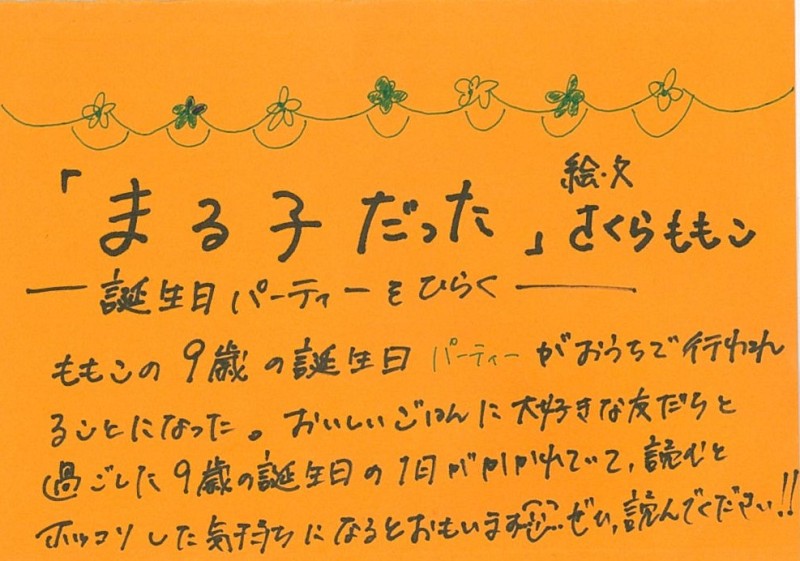 絵・文
「まる子だった」さくらももこ
― 誕生日パーティーをひらく ―
ももこの9歳の誕生日パーティーがおうちで行われ
ることになった。おいしいごはんに大好きな友だちと
過ごした9歳の誕生日の1日がかかれていて、読むと
ホッコリした気持ちになるとおもいます。ぜひ、読んでください!!